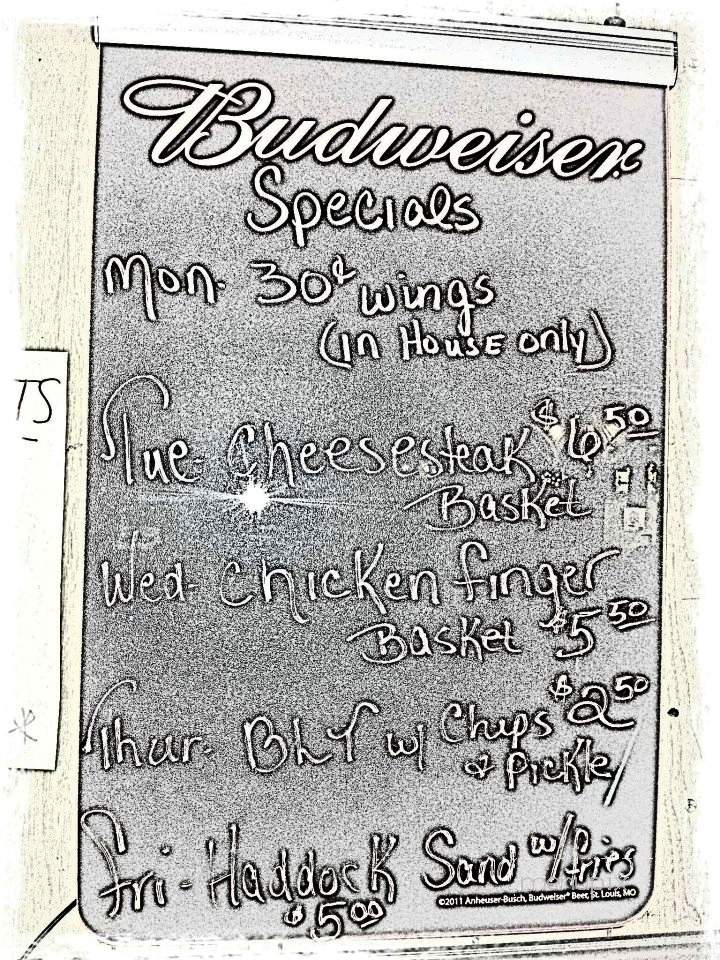 Budweiser
Specials
Mon- 30¢ wings
(in House only)
Tue- Cheesesteak $6.50
Basket
Wed- Chicken finger
Basket $5.50
Thur- BLT w/ Chips $2.50
& Pickle
Fri- Haddock Sand w/fries
$5.00
©2011 Anheuser-Busch, Budweiser® Beer, St. Louis, MO
TS